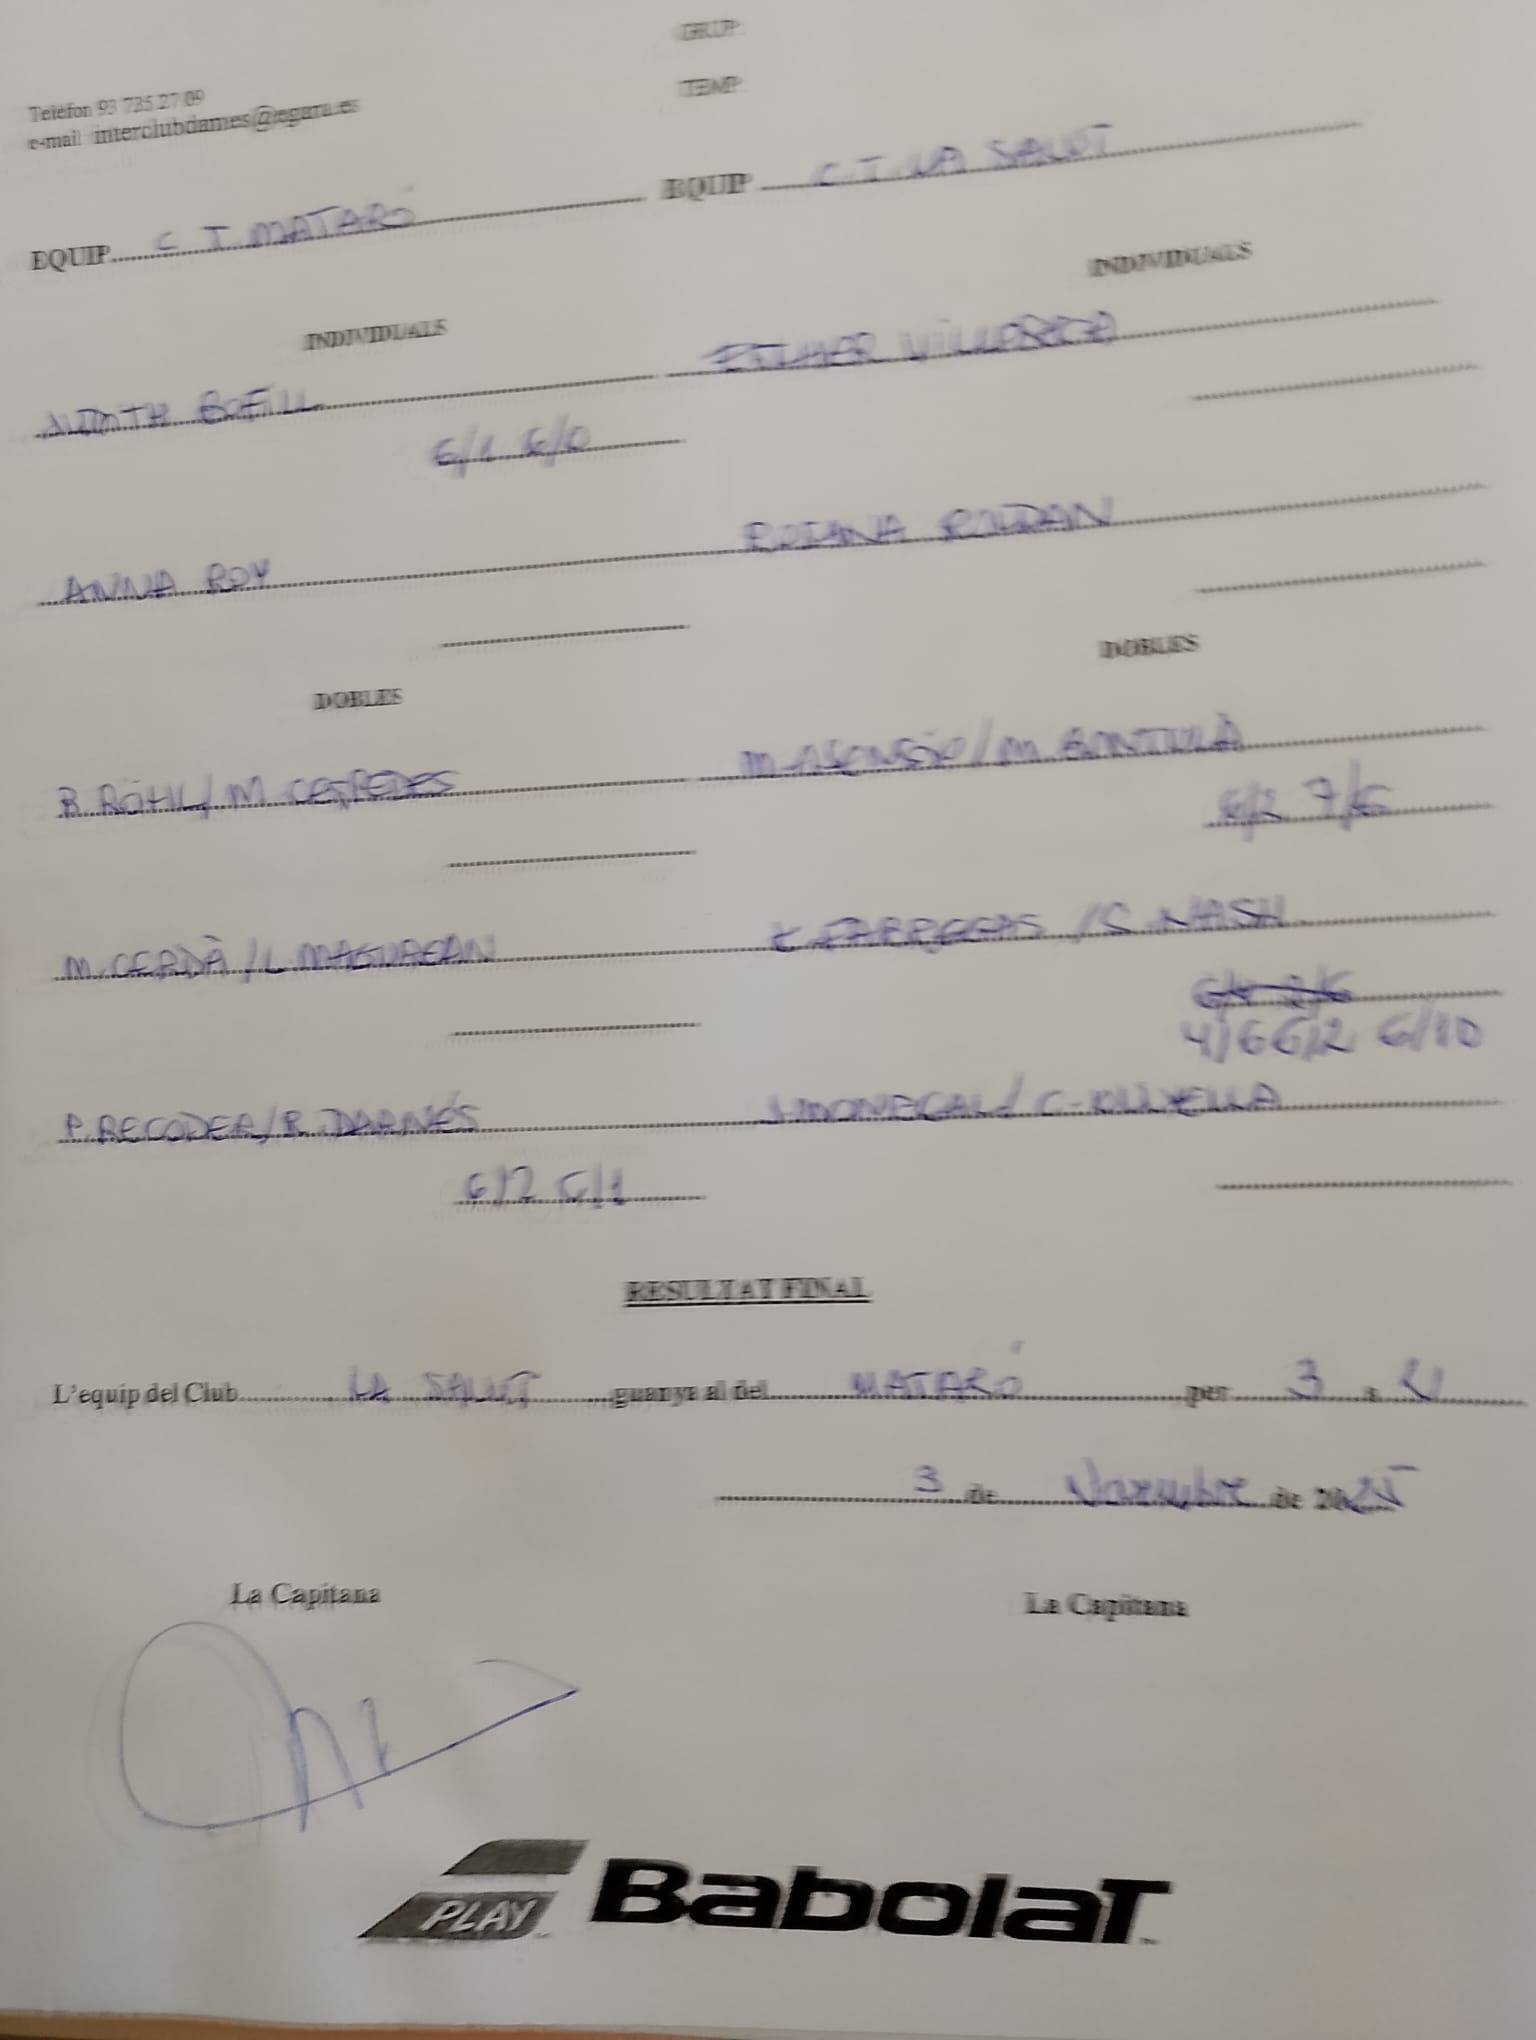 GRUP
TEMP
Telèfon 93 735 27 09
e-mail: interclubdames@egara.es
EQUIP C T. MATARÓ EQUIP C. T. LA SALUT
INDIVIDUALS INDIVIDUALS
JUDITH BOFILL ESTHER
6/1 6/0
ANNA ROY ROLDAN
DOBLES DOBLES
B. RÖHL/M. M. ASENSIO/M.
6/2 7/6
M. CERDÀ/L. FABREGAS/S. NASH
4/6 6/2 6/10
P. RECODER/R. DARNÉS J. MONEGAL/C.
6/2 6/1
RESULTAT FINAL
L'equip del Club LA SALUT guanya al del MATARÓ per 3 a 2
3 de Novembre de 2025
La Capitana La Capitana
PLAY BabolaT